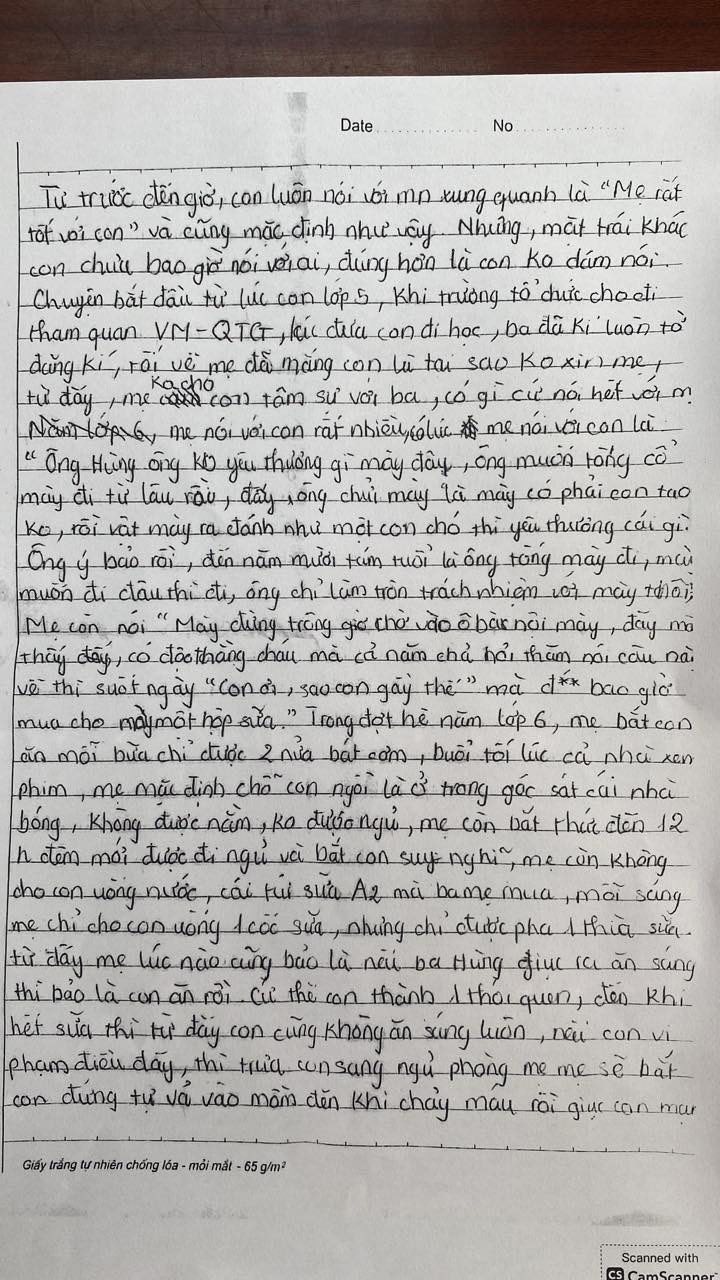 Date No
Từ trước đến giờ, con luôn nói với mn xung quanh là "Mẹ rất
tốt với con" và cũng mặc định như vậy. Nhưng, mặt trái khác
con chưa bao giờ nói với ai, đúng hơn là con ko dám nói.
Chuyện bắt đầu từ lúc con lớp 5, khi trường tổ chức cho đi
tham quan VM-QTG, lúc đưa con đi học, ba đã kí luôn tờ
đăng kí, rồi về mẹ đã mắng con là tại sao ko xin mẹ,
từ đấy, mẹ ko cho con tâm sự với ba, có gì cứ nói hết với m
Năm lớp 6, mẹ nói với con rất nhiều, có lúc mẹ nói với con là:
"Ông Hùng ông ko yêu thương gì mày đâu, ông muốn tống cổ
mày đi từ lâu rồi, đấy, ông chửi mày là mày có phải con tao
ko, rồi vật mày ra đánh như một con chó thì yêu thương cái gì.
Ông ý bảo rồi, đến năm mười tám tuổi là ông tống mày đi, mày
muốn đi đâu thì đi, ông chỉ làm tròn trách nhiệm với mày thôi"
Mẹ còn nói "Mày đừng trông giờ chờ vào ô bà nội mày, đấy mà
thấy đấy, có độc thằng cháu mà cả năm chả hỏi thăm nói câu nài
về thì suốt ngày "con ơi, sao con gầy thế" mà đ** bao giờ
mua cho mày một hộp sữa." Trong đợt hè năm lớp 6, mẹ bắt con
ăn mỗi bữa chỉ được 2 nửa bát cơm, buổi tối lúc cả nhà xem
phim, mẹ mặc định chỗ con ngồi là ở trong góc sát cái nhà
bóng, không được nằm, ko được ngủ, mẹ còn bắt thức đến 12
h đêm mới được đi ngủ và bắt con suy nghĩ, mẹ còn không
cho con uống nước, cái túi sữa A2 mà ba mẹ mua, mỗi sáng
mẹ chỉ cho con uống 1 cốc sữa, nhưng chỉ được pha 1 thìa sữa.
từ đấy mẹ lúc nào cũng bảo là nếu ba Hùng giục ra ăn sáng
thì bảo là con ăn rồi. Cứ thế con thành 1 thói quen, đến khi
hết sữa thì từ đấy con cũng không ăn sáng luôn, nếu con vi
phạm điều đấy, thì trưa con sang ngủ phòng mẹ mẹ sẽ bắt
con đứng tự vả vào mồm đến khi chảy máu rồi giục con mau
Giấy trắng tự nhiên chống lóa - mỏi mắt - 65 g/m²
Scanned with
CS CamScanner